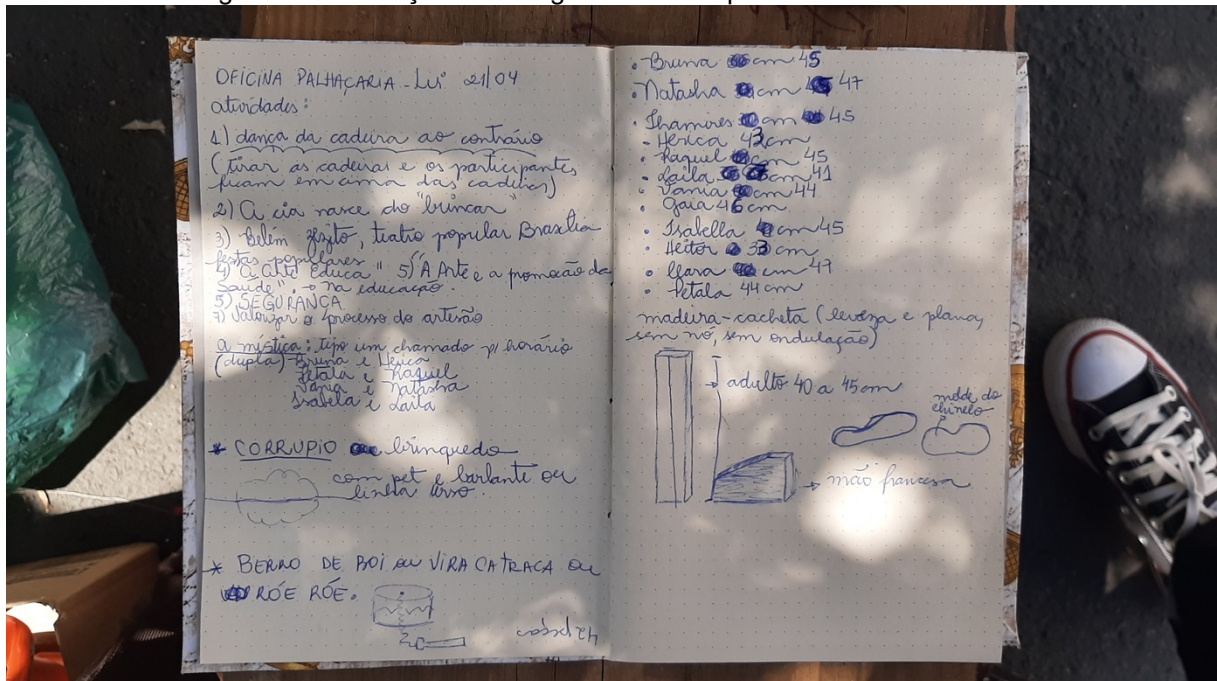 OFICINA PALHAÇARIA - Lui 21/04
atividades:
1) dança da cadeira ao contrário
(tirar as cadeiras e os participantes
ficam em cima das cadeiras)
2) A cia nasce do "brincar"
3) Belém, teatro popular Brasília
festas populares
4) "a arte educa" 5) "A Arte e a promoção da
Saúde". → na educação.
5) SEGURANÇA
7) Valorizar o processo do artesão
a mística: tipo um chamado p/ horário
(dupla) - Bruna e Herica
Petala e Raquel
Vania e Natasha
Isabela e Laila
* CORRUPIO brinquedo
com pet e barbante ou
linha urso.
* BERRO DE BOI ou VIRA CATRACA ou
RÓE RÓE.
42 peças
• Bruna cm 45
• Natasha cm 47
• Thamires cm 45
• Herica 43cm
• Raquel cm 45
• Laila cm 41
• Vania cm 44
• Gaia 46cm
• Isabella cm 45
• Heitor 33cm
• Yara cm 47
• Petala 44cm
madeira-cacheta (leveza e plana,
sem nó, sem ondulação)
→ adulto 40 a 45cm
molde do
chinelo
→ mão francesa